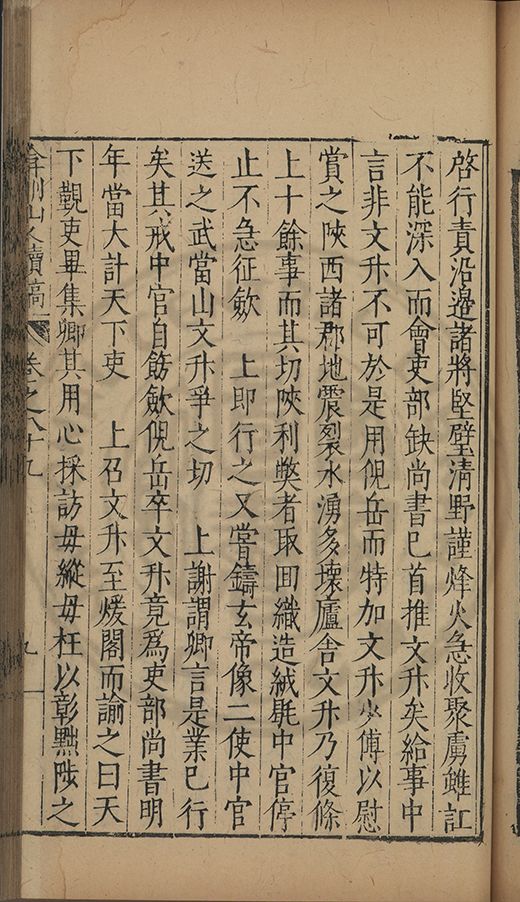 啓行責沿邊諸將堅壁清野謹烽火急收聚虜雖訌
不能深入而會吏部缺尚書已首推文升矣給事中
言非文升不可於是用倪岳而特加文升少傅以慰
賞之陝西諸郡地震裂水湧多壞廬舍文升乃復條
上十餘事而其切陝利弊者取回織造絨毼中官停
止不急征歛　上即行之又嘗鑄玄帝像二使中官
送之武當山文升爭之切　上謝謂卿言是業已行
矣其戒中官自飭歛倪岳卒文升竟爲吏部尚書明
年當大計天下吏　上召文升至煖閣而諭之曰天
下覲吏畢集卿其用心採訪毋縱毋枉以彰黜陟之
弇州山人續稿　卷之八十九　九